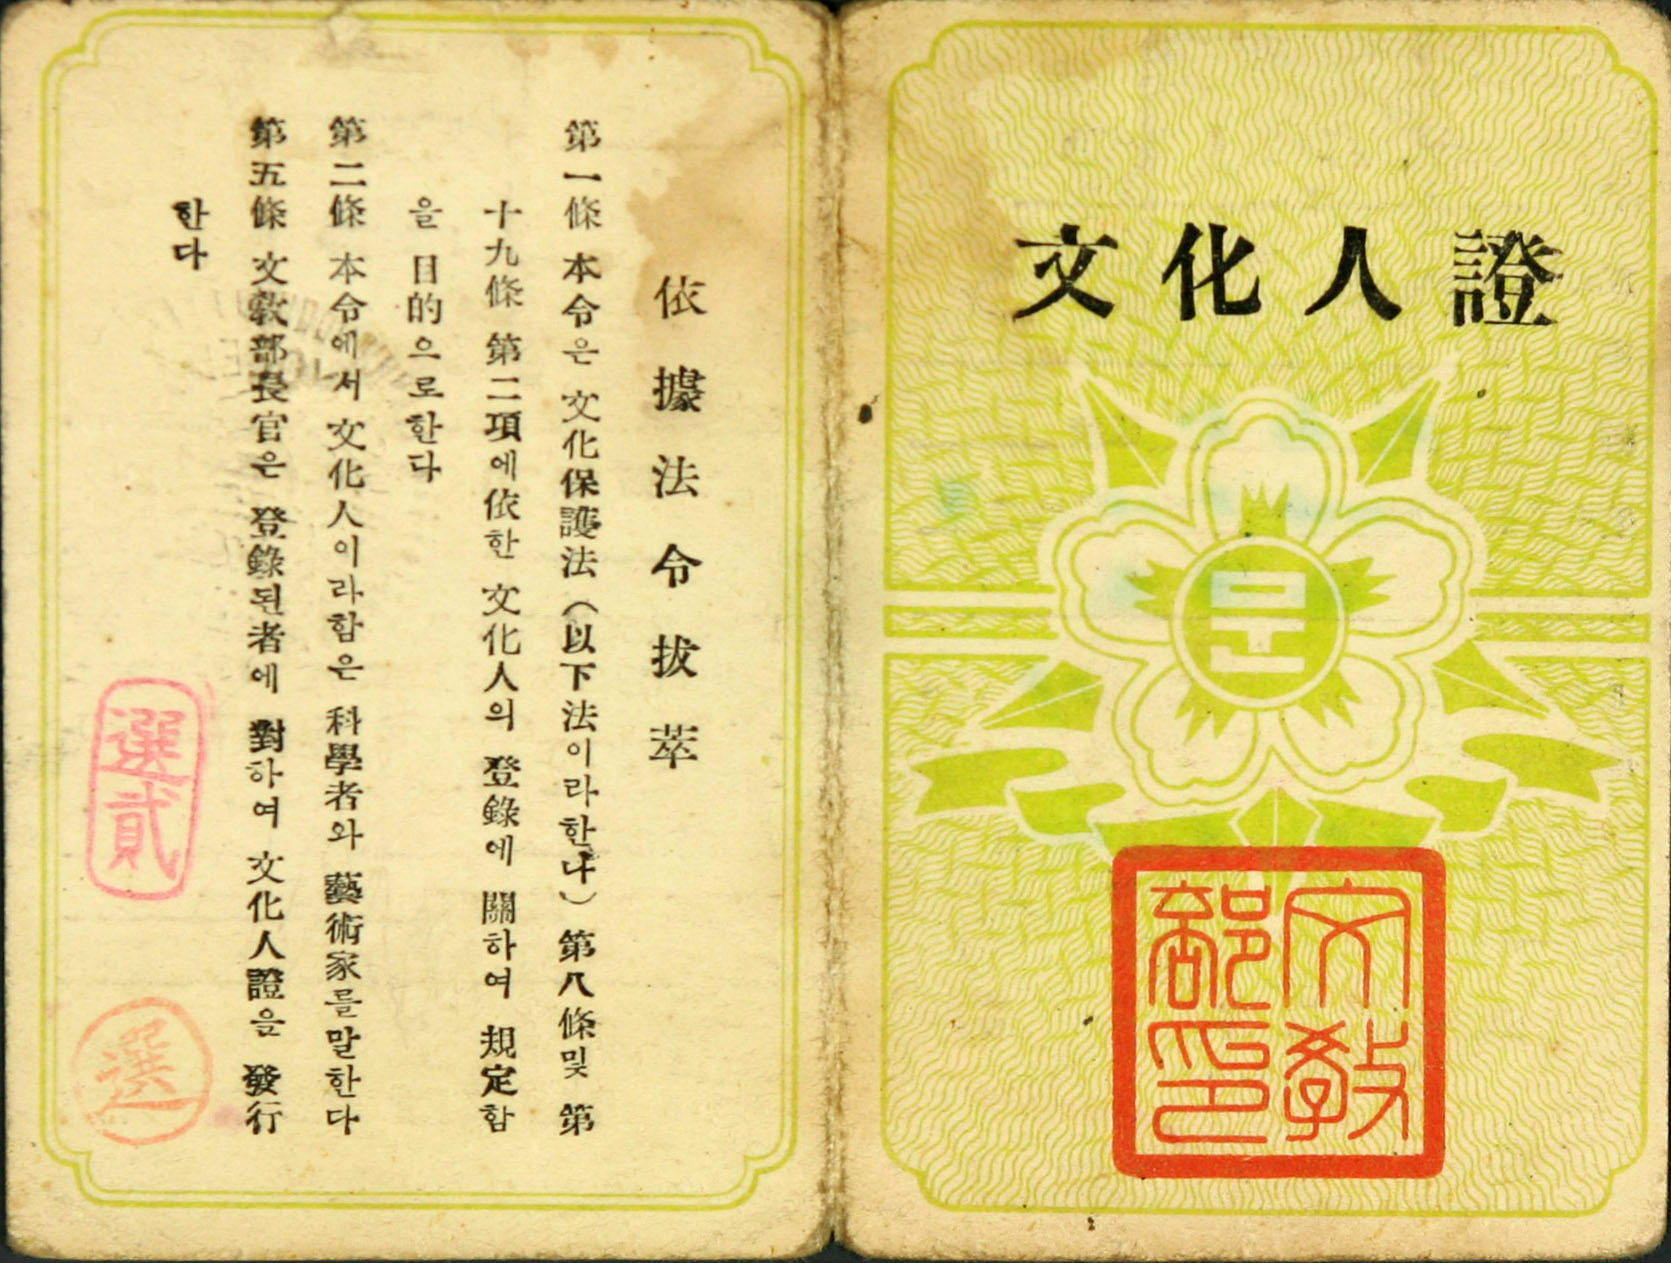 文化人證
문
文敎部印
依據法令拔萃
第一條 本令은 文化保護法(以下法이라한다) 第八條및 第
十九條 第二項에依한 文化人의 登錄에 關하여 規定함
을 目的으로한다
第二條 本令에서 文化人이라함은 科學者와 藝術家를말한다
第五條 文敎部長官은 登錄된者에 對하여 文化人證을 發行
한다
選貳
選